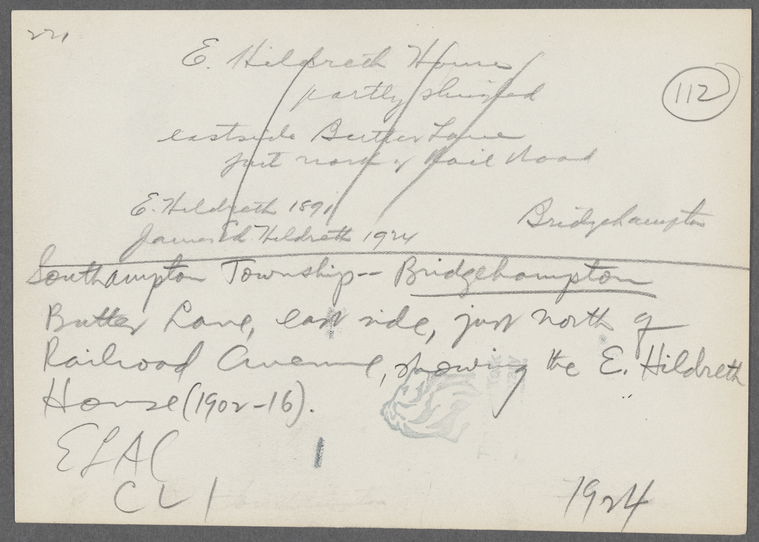 221
E. Hildreth House
partly shingled
112
eastside Butter Lane
just north of Rail Road
E. Hildreth 1891
Bridgehampton
James Ed. Hildreth 1924
Southampton Township -- Bridgehampton
Butter Lane, east side, just north of
Railroad Avenue, showing the E. Hildreth
House (1902-16).
ELAC
CLI
1924